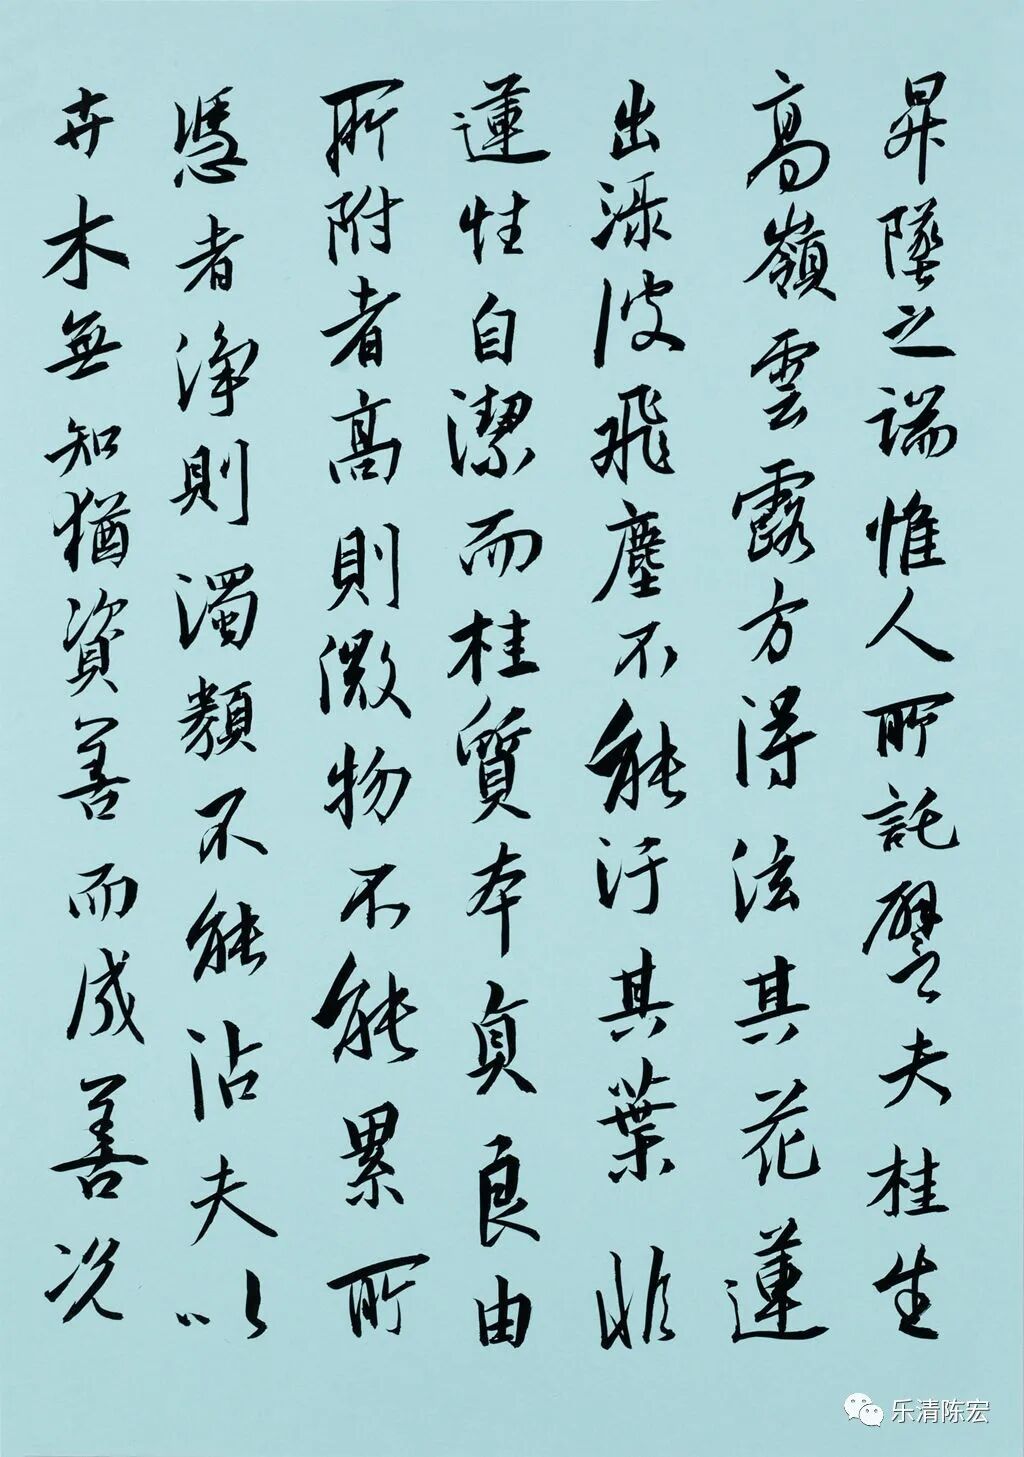 昇墜之端惟人所託譬夫桂生
高嶺雲露方得泫其花蓮
出淥波飛塵不能汙其葉非
蓮性自潔而桂質本貞良由
所附者高則微物不能累所
憑者淨則濁類不能沾夫以
卉木無知猶資善而成善況
乐清陈宏